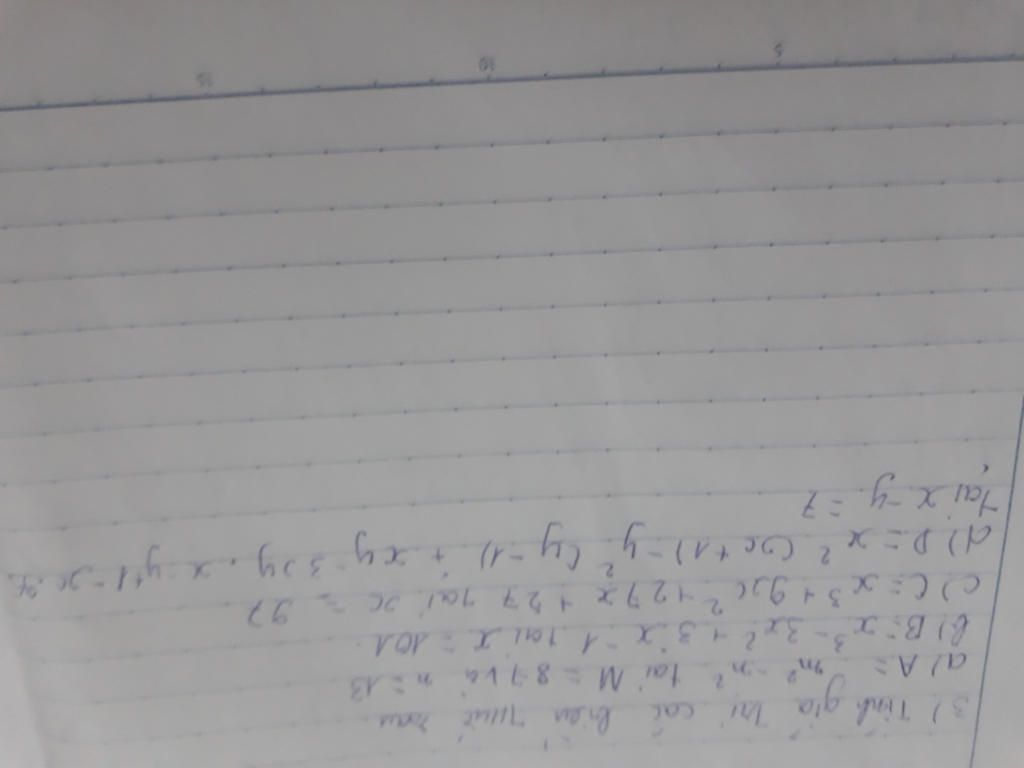 3) Tính giá trị các biểu thức sau
a) A = m² - n² tại M = 87 và n = 13
b) B = x³ - 3x² + 3x - 1 tại x = 101.
c) C = x³ + 9x² + 27x + 27 tại x = 97
d) D = x² (x + 1) - y² (y - 1) + xy - 3xy . x - y + 1 - x
Tại x - y = 7
5 10 15